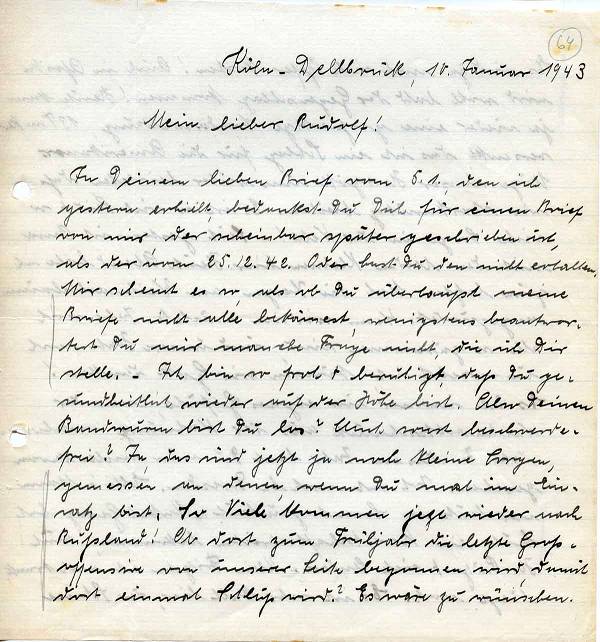 64
Köln - Dellbrück, 10. Januar 1943
Mein lieber Rudolf!
In Deinem lieben Brief vom 5.1., den ich
gestern erhielt, bedankst Du Dich für einen Brief
von mir der scheinbar später geschrieben ist,
als der vom 25.12.42. Oder hast Du den nicht erhalten.
Mir scheint es so, als ob Du überhaupt meine
Briefe nicht alle bekämest, wenigstens beantwor-
test Du mir manche Frage nicht, die ich Dir
stelle. - Ich bin so froh + beruhigt, daß Du ge-
sundheitlich wieder auf der Höhe bist. Also Deinen
Bandwurm bist Du los? Auch sonst beschwerde-
frei? Ja, das sind jetzt ja noch kleine Sorgen,
gemessen an denen, wenn Du mal im Ein-
satz bist. So Viele kommen jetzt wieder nach
Rußland! Ob dort zum Frühjahr die letzte Groß-
offensive von unserer Seite begonnen wird, damit
dort einmal Schluß wird? Es wäre zu wünschen.